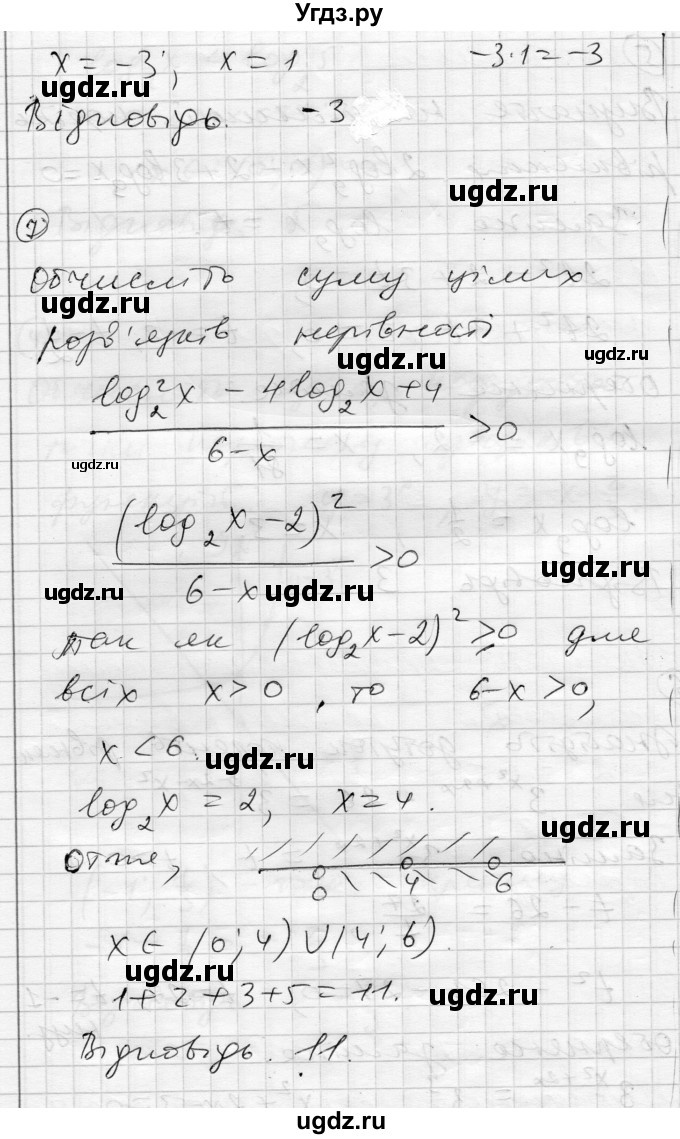 Угдз.ру
x = -3; x = 1 -3·1 = -3
ugdz.ru
Відповідь. -3
ugdz.ru
ugdz.ru
7
Обчисліть суму цілих
ugdz.ru
розв'язків нерівності
ugdz.ru ugdz.ru
(log₂²x - 4log₂x + 4) / (6-x) > 0
ugdz.ru
(log₂x - 2)² / (6-x) > 0
ugdz.ru ugdz.ru ugdz.ru
так як (log₂x - 2)² ≥ 0 для
всіх x > 0, то 6-x > 0,
x < 6.
ugdz.ru
log₂x = 2, x = 4.
ugdz.ru
Отже,
0 4 6
x ∈ (0; 4) ∪ (4; 6).
ugdz.ru
1 + 2 + 3 + 5 = 11.
ugdz.ru
Відповідь. 11.
ugdz.ru